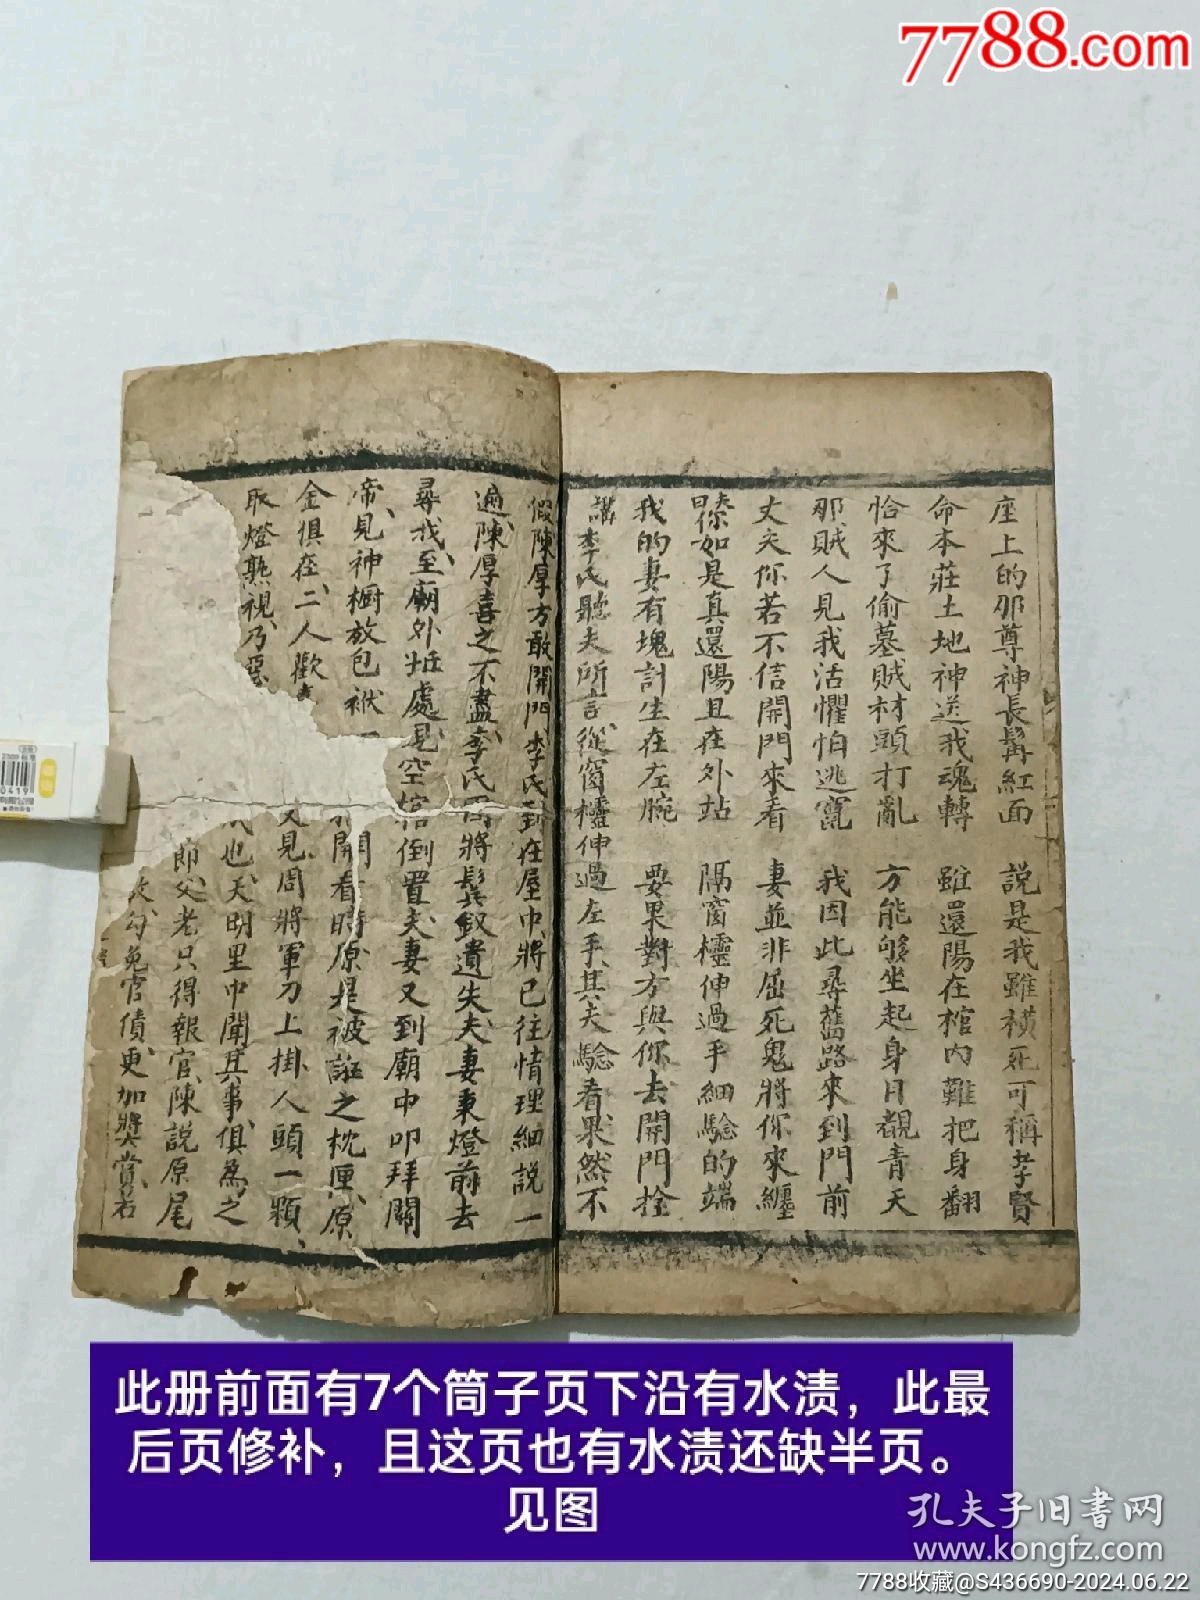 7788.com
座上的那尊神長髯紅面 說是我雖橫死可稱孝賢
命本莊土地神送我魂轉 雖還陽在棺內難把身翻
恰來了偷墓賊材頭打亂 方能够坐起身月覩青天
那賊人見我活懼怕逃竄 我因此尋舊路來到門前
丈夫你若不信開門來看 妻並非屈死鬼將你來纏
你如是真還陽且在外站 隔窗櫺伸過手細驗的端
我的妻有塊計生在左腕 要果對方與你去開門拴
講李氏聽夫所言從窗櫺伸過左手其夫驗看果然不
假陳厚方敢開門李氏到在屋中將已往情理細說一
遍陳厚喜之不盡李氏將鬓釵遺失夫妻秉燈前去
尋找至廟外班處見空棺倒置夫妻又到廟中叩拜關
帝見神櫥放包袱 開看時原是被誆之枕匣原
金俱在二人歡 見周將軍刀上掛人頭一顆
取燈熟視乃 也天明里中聞其事俱為之
節父老只得報官陳說原尾
勾免官債更加獎賞若
此册前面有7个筒子页下沿有水渍，此最
后页修补，且这页也有水渍还缺半页。
见图
孔夫子旧书网
www.kongfz.com
7788收藏@S436690-2024.06.22